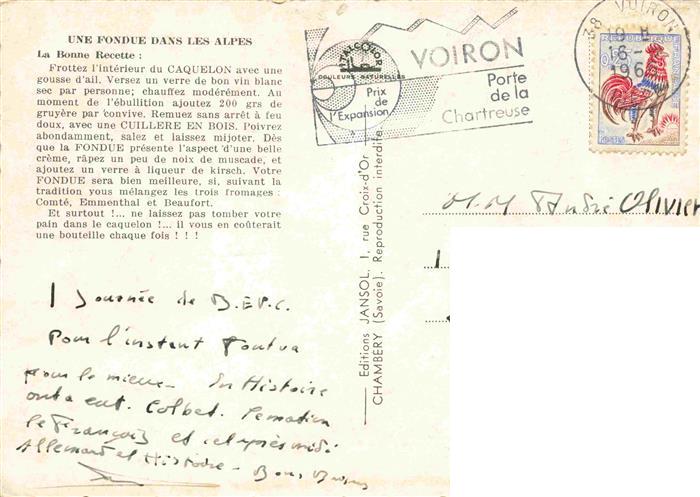 UNE FONDUE DANS LES ALPES
La Bonne Recette :
Frottez l'intérieur du CAQUELON avec une
gousse d'ail. Versez un verre de bon vin blanc
sec par personne; chauffez modérément. Au
moment de l'ébullition ajoutez 200 grs de
gruyère par convive. Remuez sans arrêt à feu
doux, avec une CUILLERE EN BOIS. Poivrez
abondamment, salez et laissez mijoter. Dès
que la FONDUE présente l'aspect d'une belle
crème, râpez un peu de noix de muscade, et
ajoutez un verre à liqueur de kirsch. Votre
FONDUE sera bien meilleure, si, suivant la
tradition vous mélangez les trois fromages :
Comté, Emmenthal et Beaufort.
Et surtout !... ne laissez pas tomber votre
pain dans le caquelon !... il vous en coûterait
une bouteille chaque fois ! ! !
1 Journée de B.E.P.C.
Pour l'instant tout va
pour le mieux - En Histoire
ont eu Colbert.
le Français et cet après midi
Allemand et Histoire - Bons Baisers
Editions JANSOL, 1, rue Croix-d'Or
CHAMBERY (Savoie). Reproduction interdite.
COULEURS NATURELLES
Prix
de
l'Expansion
VOIRON
Porte
de la
Chartreuse
38 VOIRON
16-
196
M.M André Olivier